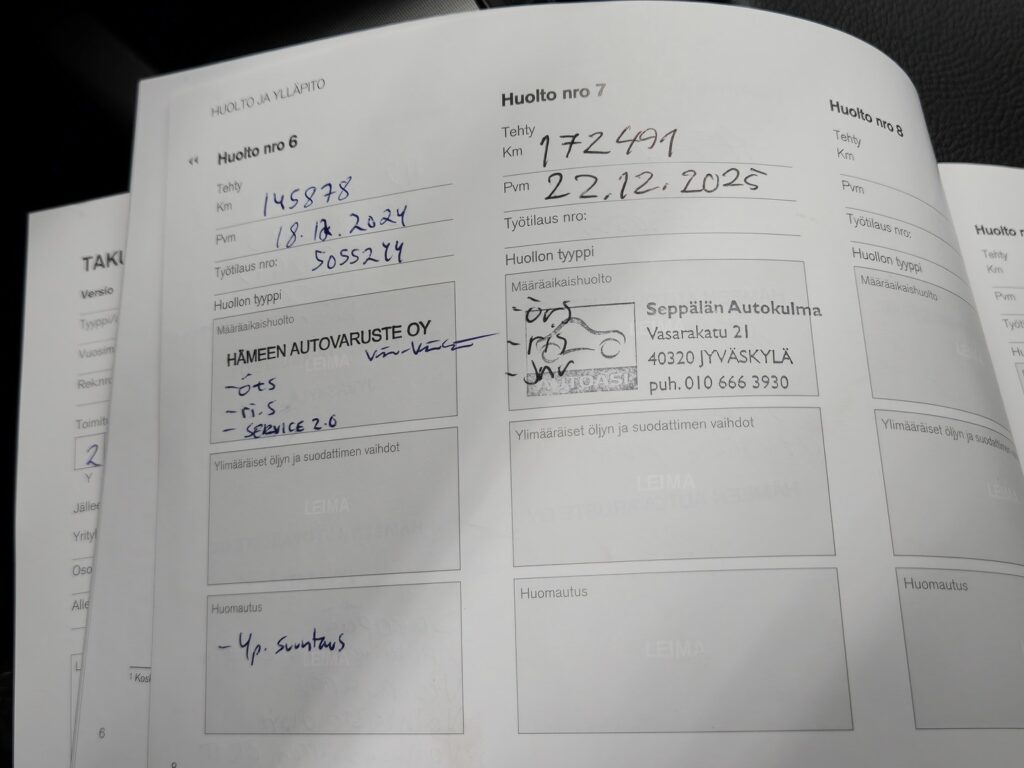 HUOLTO JA YLLÄPITO
Huolto nro 6
Tehty
Km 145878
Pvm 18.12.2024
Työtilaus nro: 5055244
Huollon tyyppi
Määräaikaishuolto
HÄMEEN AUTOVARUSTE OY
- öts
- ri.s
- SERVICE 2.0
Ylimääräiset öljyn ja suodattimen vaihdot
LEIMA
Huomautus
- 4p. suuntaus
LEIMA
Huolto nro 7
Tehty
Km 172491
Pvm 22.12.2025
Työtilaus nro:
Huollon tyyppi
Määräaikaishuolto
- ris
- jnv
AUTOASI
Seppälän Autokulma
Vasarakatu 21
40320 JYVÄSKYLÄ
puh. 010 666 3930
Ylimääräiset öljyn ja suodattimen vaihdot
LEIMA
Huomautus
LEIMA
Huolto nro 8
Tehty
Km
Pvm
Työtilaus nro:
Huollon tyyppi
Määräaikaishuolto
Ylimääräiset öljyn ja suodattimen
Huomautus
Huolto
Tehty
Km
Pvm
TAKU
Versio
Vuosim
Rek.nro
Toimit
2
Y
Jälle
Yrity
Oso
6